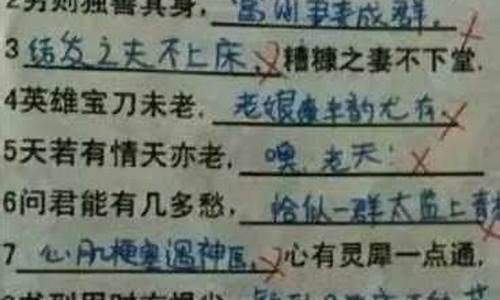 2穷则独善其身,富则妻妾成群,
3结发之夫不上床,糟糠之妻不下堂.
4英雄宝刀未老,老娘丰韵尤存
5天若有情天亦老,噢,老天!
6问君能有几多愁,恰似一群太监上青
7心肌梗塞遇神医,心有灵犀一点通,